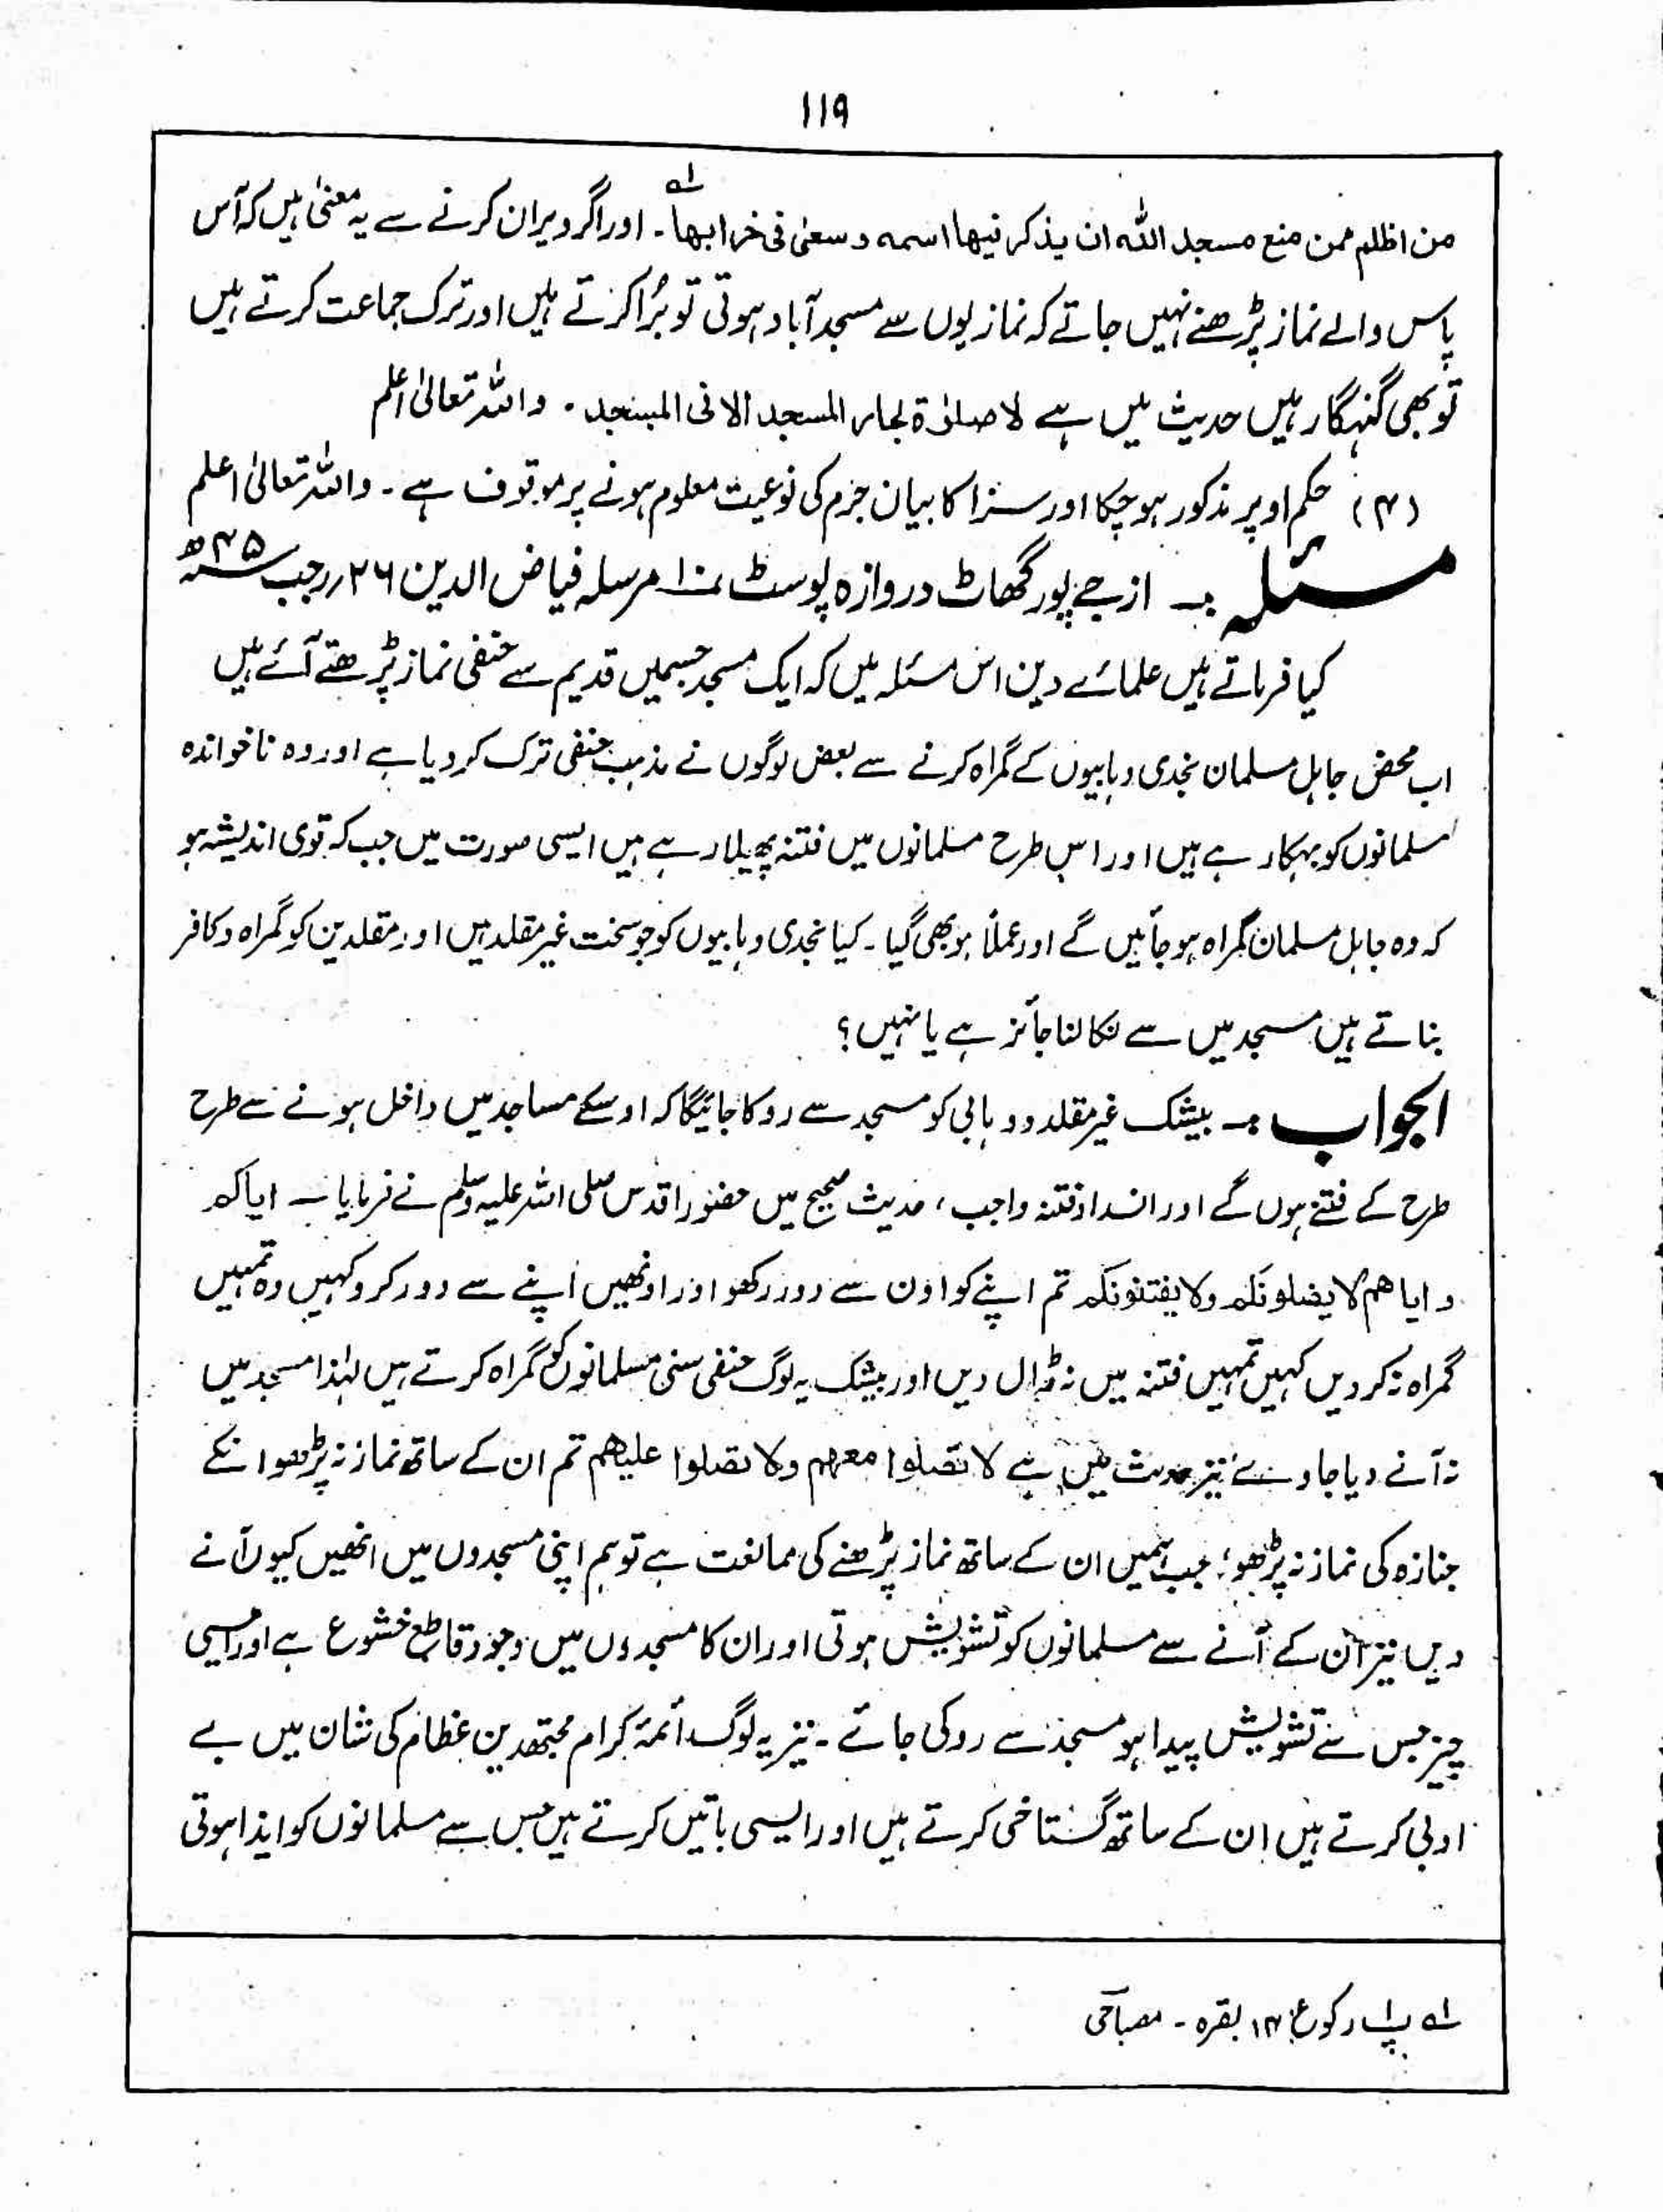 ۱۱۹
من اظلم ممن منع مسجد اللہ ان یذکر فیھا اسمہ وسعیٰ فی خرابھا۔ لہ اور اگر ویران کرنے سے یہ معنیٰ ہیں کہ آس
پاس والے نماز پڑھنے نہیں جاتے کہ نمازیوں سے مسجد آباد ہوتی تو بُرا کرتے ہیں اور ترک جماعت کرتے ہیں
تو بھی گنہگار ہیں حدیث میں ہے لا صلوٰۃ لجار المسجد الا فی المسجد ۔ واللہ تعالیٰ اعلم
(۴) حکم اوپر مذکور ہو چکا اور سزا کا بیان جرم کی نوعیت معلوم ہونے پر موقوف ہے ۔ واللہ تعالیٰ اعلم
مسئلہ :۔ از جے پور گھاٹ دروازہ پوسٹ ۱۰ مرسلہ فیاض الدین ۲۶ رجب ۴۵ھ
کیا فرماتے ہیں علمائے دین اس مسئلہ میں کہ ایک مسجد جسمیں قدیم سے حنفی نماز پڑھتے آئے ہیں
اب محض جاہل مسلمان نجدی وہابیوں کے گمراہ کرنے سے بعض لوگوں نے مذہب حنفی ترک کر دیا ہے اور وہ ناخواندہ
مسلمانوں کو بہکا رہے ہیں اور اس طرح مسلمانوں میں فتنہ پھیلا رہے ہیں ایسی صورت میں جب کہ قوی اندیشہ ہو
کہ وہ جاہل مسلمان گمراہ ہو جائیں گے اور عملاً ہو بھی گیا ۔ کیا نجدی وہابیوں کو جو سخت غیر مقلد ہیں اور مقلدین کو گمراہ وکافر
بناتے ہیں مسجد میں سے نکالنا جائز ہے یا نہیں ؟
الجواب :۔ بیشک غیر مقلد و وہابی کو مسجد سے روکا جائیگا کہ اوسکے مساجد میں داخل ہونے سے طرح
طرح کے فتنے ہوں گے اور انسداد فتنہ واجب ، حدیث صحیح میں حضور اقدس صلی اللہ علیہ وسلم نے فرمایا ۔ ایاکم
و ایاھم لا یضلونکم ولا یفتنونکم تم اپنے کو اون سے دور رکھو اور اونھیں اپنے سے دور کرو کہیں وہ تمہیں
گمراہ نہ کر دیں کہیں تمہیں فتنہ میں نہ ڈال دیں اور بیشک یہ لوگ حنفی سنی مسلمانوں کو گمراہ کرتے ہیں لہٰذا مسجد میں
نہ آنے دیا جاوے نیز حدیث میں ہے لا تصلوا معھم ولا تصلوا علیھم تم ان کے ساتھ نماز نہ پڑھو انکے
جنازہ کی نماز نہ پڑھو؛ جب ہمیں ان کے ساتھ نماز پڑھنے کی ممانعت ہے تو ہم اپنی مسجدوں میں انھیں کیوں آنے
دیں نیز ان کے آنے سے مسلمانوں کو تشویش ہوتی اور ان کا مسجدوں میں وجود قاطع خشوع ہے اور ایسی
چیز جس سے تشویش پیدا ہو مسجد سے روکی جائے ۔ نیز یہ لوگ ائمۂ کرام مجتھدین عظام کی شان میں بے
ادبی کرتے ہیں ان کے ساتھ گستاخی کرتے ہیں اور ایسی باتیں کرتے ہیں جس سے مسلمانوں کو ایذا ہوتی
لہ پ۱ رکوع ۱۴ بقرہ ۔ مصباحی